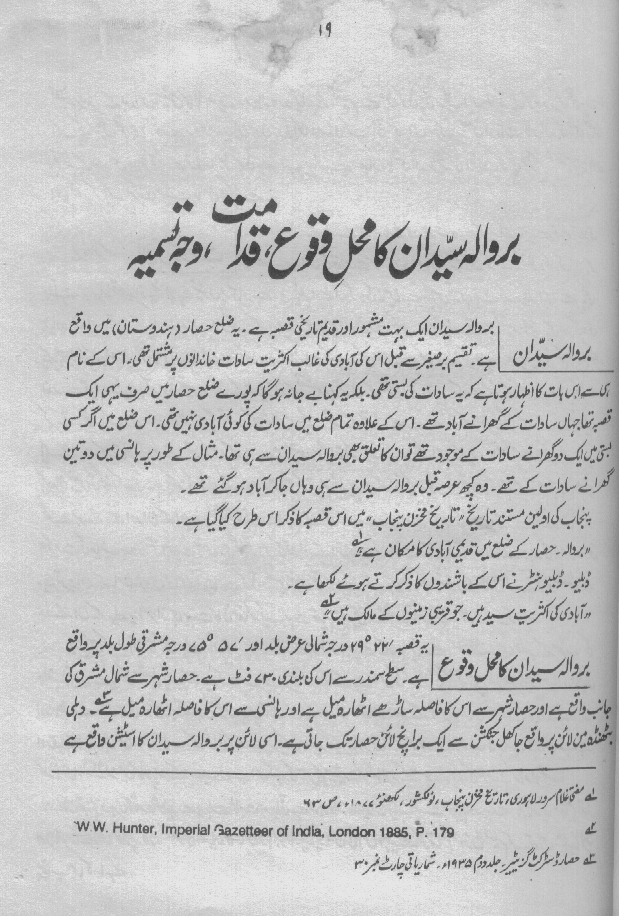 ۱۹
بروالہ سیّدان کا محلِ وقوع، قدامت، وجہ تسمیہ
بروالہ سیّدان
بروالہ سیدان ایک بہت مشہور اور قدیم تاریخی قصبہ ہے۔ یہ ضلع حصار (ہندوستان) میں واقع
ہے۔ تقسیم برصغیر سے قبل اس کی آبادی کی غالب اکثریت سادات خاندانوں پر مشتمل تھی۔ اس کے نام
ہی سے اس بات کا اظہار ہوتا ہے کہ یہ سادات کی بستی تھی۔ بلکہ یہ کہنا بے جا نہ ہوگا کہ پورے ضلع حصار میں صرف یہی ایک
قصبہ تھا جہاں سادات کے گھرانے آباد تھے۔ اس کے علاوہ تمام ضلع میں سادات کی کوئی آبادی نہیں تھی۔ اس ضلع میں اگر کسی
بستی میں ایک دو گھرانے سادات کے موجود تھے تو ان کا تعلق بھی بروالہ سیدان سے ہی تھا۔ مثال کے طور پر ہانسی میں دو تین
گھرانے سادات کے تھے۔ وہ کچھ عرصہ قبل بروالہ سیدان سے ہی وہاں جا کر آباد ہو گئے تھے۔
پنجاب کی اولین مستند تاریخ "تاریخ مخزن پنجاب" میں اس قصبہ کا ذکر اس طرح کیا گیا ہے۔
"بروالہ۔ حصار کے ضلع میں قدیمی آبادی کا مکان ہے" ۱ے
ڈبلیو۔ ڈبلیو ہنٹر نے اس کے باشندوں کا ذکر کرتے ہوئے لکھا ہے۔
"آبادی کی اکثریت سید ہیں۔ جو قریبی زمینوں کے مالک ہیں" ۲ے
بروالہ سیدان کا محل وقوع
یہ قصبہ ۲۲′ ۲۹° درجہ شمالی عرض بلد اور ۵۷′ ۷۵° درجہ مشرقی طول بلد پر واقع
ہے۔ سطح سمندر سے اس کی بلندی ۷۳۰ فٹ ہے۔ حصار شہر سے شمال مشرق کی
جانب واقع ہے اور حصار شہر سے اس کا فاصلہ ساڑھے اٹھارہ میل ہے اور ہانسی سے اس کا فاصلہ اٹھارہ میل ہے ۳ے۔ دہلی
بٹھنڈہ مین لائن پر واقع جاکھل جنکشن سے ایک برانچ لائن حصار تک جاتی ہے۔ اسی لائن پر بروالہ سیدان کا اسٹیشن واقع ہے
۱ے مفتی غلام سرور لاہوری، تاریخ مخزن پنجاب، نولکشور، لکھنؤ ۱۸۷۷ء، ص ۶۳
۲ے W.W. Hunter, Imperial Gazetteer of India, London 1885, P. 179
۳ے حصار ڈسٹرکٹ گزیٹیر۔ جلد دوم ۱۹۳۵ء۔ شماریاتی چارٹ نمبر ۳۰